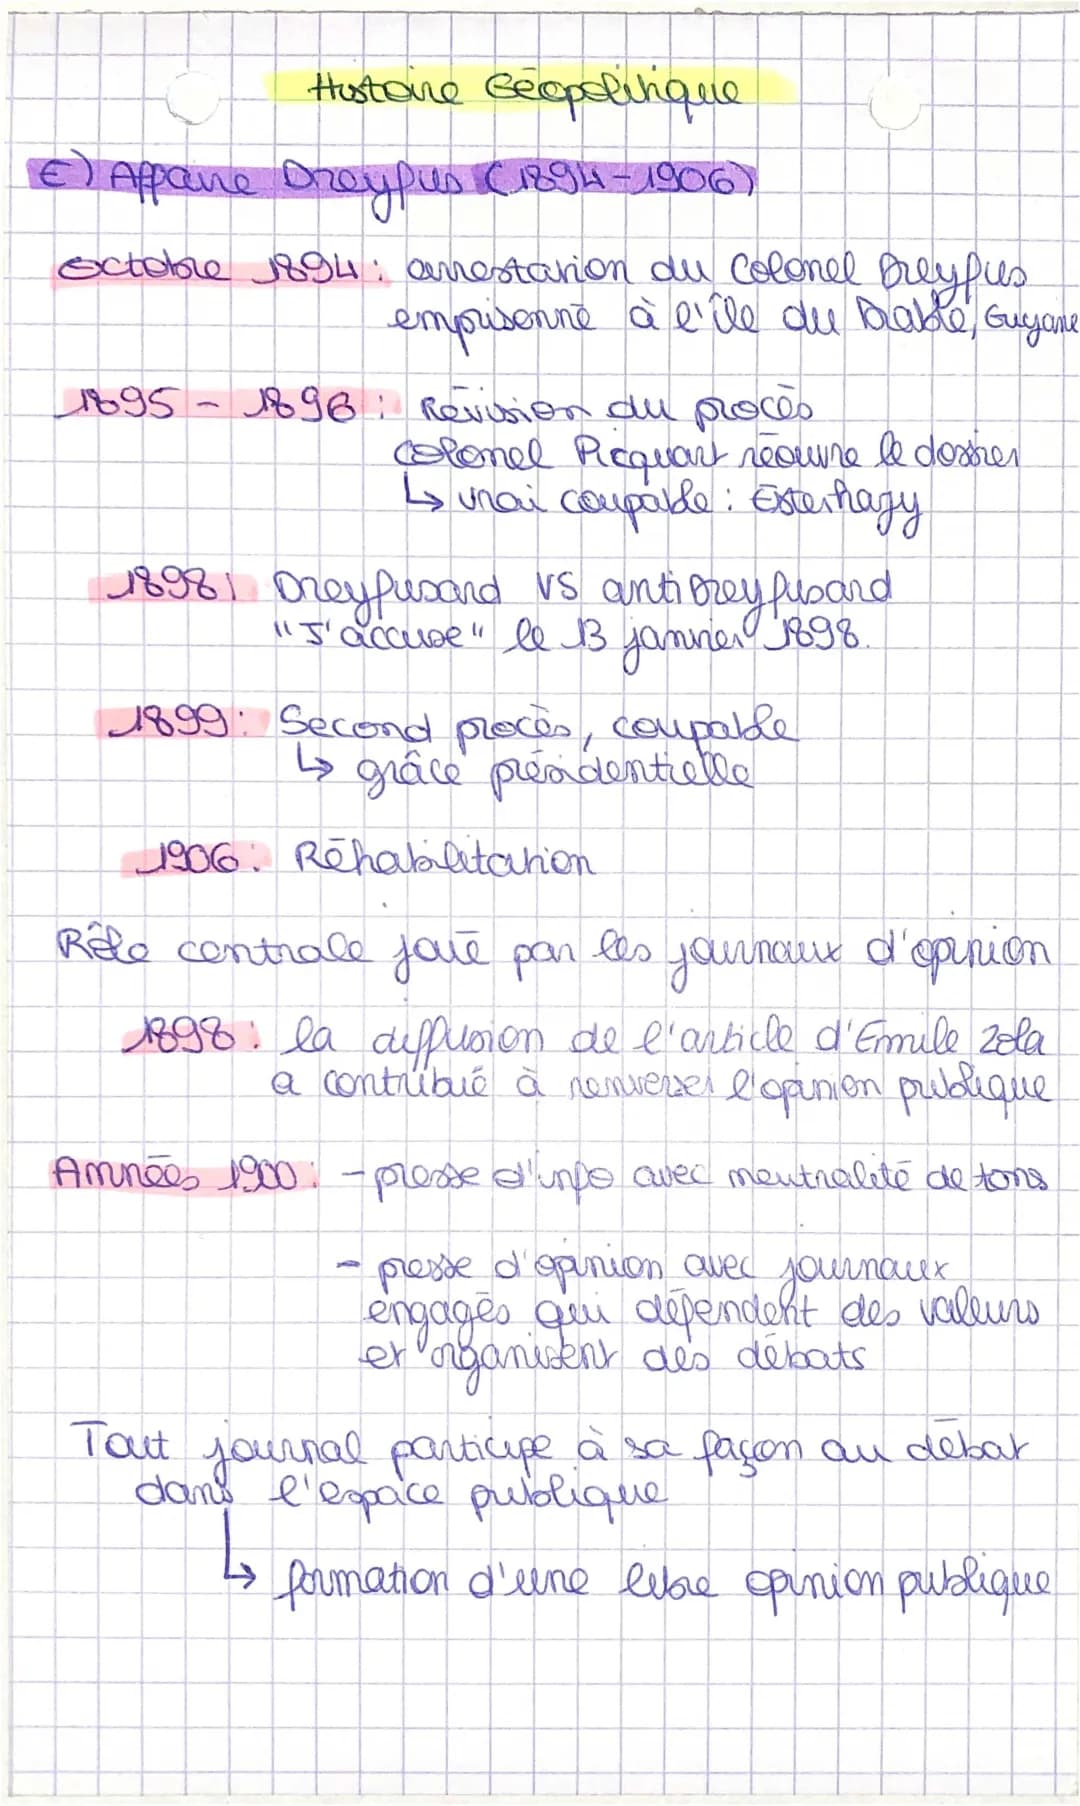 Histoire Géopolitique
E) Affaire Dreyfus (1894-1906)
Octobre 1894 : arrestation du Colonel Dreyfus
emprisonné à l'île du Diable, Guyane
1895 - 1896 : Révision du procès
colonel Picquart réouvre le dossier
↳ vrai coupable : Esterhazy
1898 : Dreyfusard VS antiDreyfusard
"J'accuse" le 13 janvier 1898.
1899 : Second procès, coupable
↳ grâce présidentielle
1906 : Réhabilitation
Rôle centrale joué par les journaux d'opinion
1898 : la diffusion de l'article d'Emile Zola
a contribué à renverser l'opinion publique
Années 1900 : - presse d'info avec neutralité de tons
- presse d'opinion avec journaux
engagés qui dépendent des valeurs
et organisent des débats
Tout journal participe à sa façon au débat
dans l'espace publique
↳ formation d'une libre opinion publique